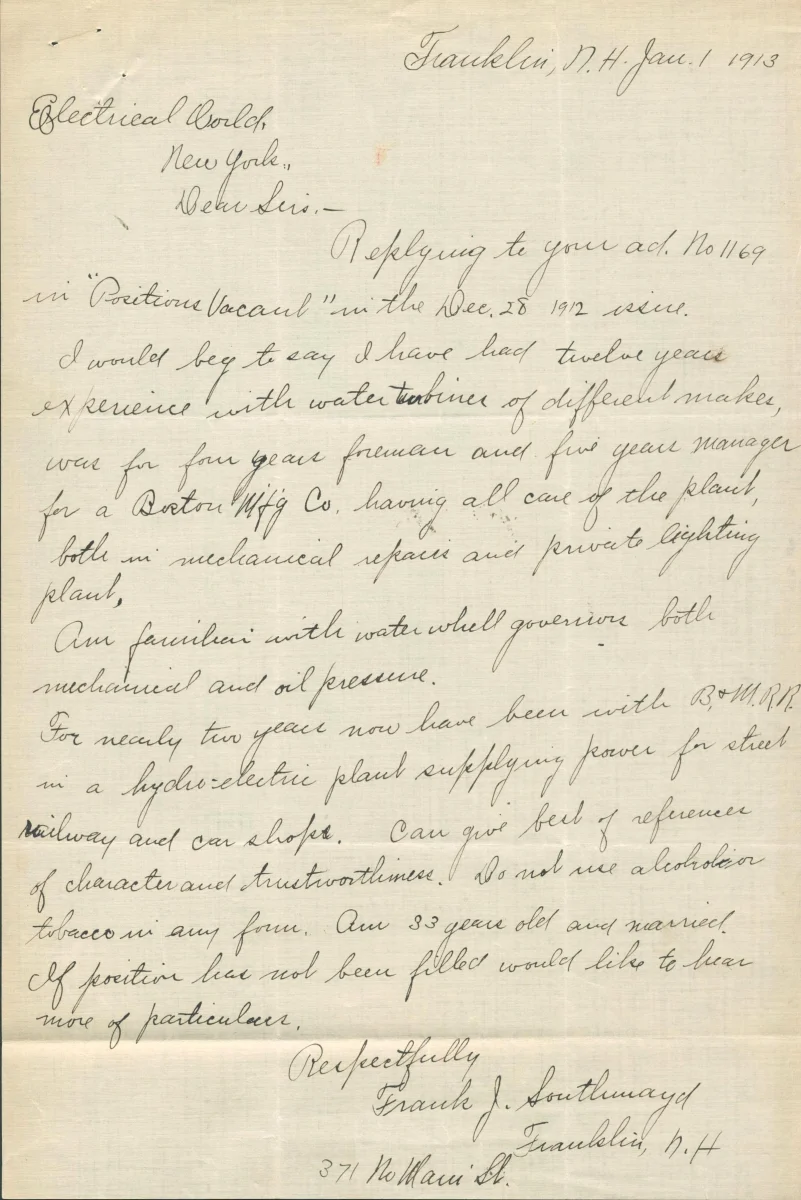 Franklin, N. H. Jan. 1 1913
Electrical World,
New York.,
Dear Sirs.—
Replying to your ad. No 1169
in "Positions Vacant" in the Dec. 28 1912 issue.
I would beg to say I have had twelve years
experience with water turbines of different makes,
was for four years foreman and five years manager
for a Boston Mf'g Co. having all care of the plant,
both in mechanical repairs and private lighting
plant,
Am familiar with water whell governors both
mechanical and oil pressure.
For nearly two years now have been with B. & M. R. R.
in a hydro-electric plant supplying power for street
railway and car shops. Can give best of references
of character and trustworthiness. Do not use alcohol or
tobacco in any form. Am 33 years old and married.
If position has not been filled would like to hear
more of particulars.
Respectfully
Frank J. Southmayd
Franklin, N. H
371 No Main St.